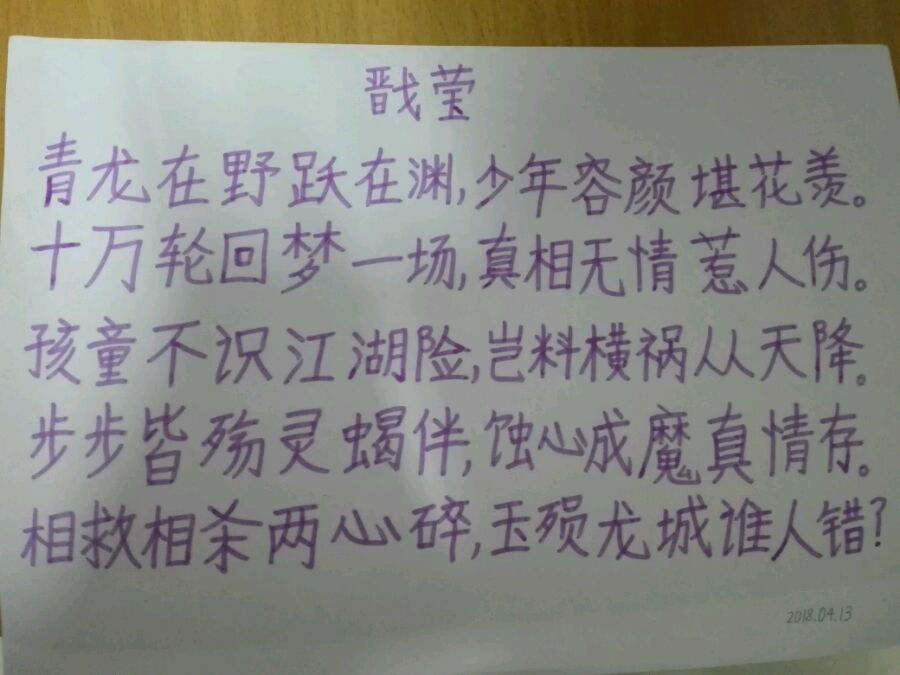 戬莹
青龙在野跃在渊,少年容颜堪花羡。
十万轮回梦一场,真相无情惹人伤。
孩童不识江湖险,岂料横祸从天降。
步步皆殇灵蝎伴,蚀心成魔真情存。
相救相杀两心碎,玉殒龙城谁人错?
2018.04.13